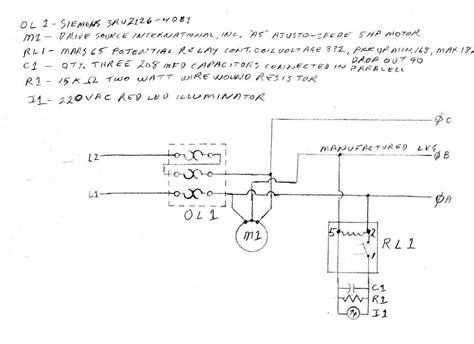 OL1 - SIEMENS 3RU2126-4DB1
M1 - DRIVE SOURCE INTERNATIONAL, INC. "A5" AJUSTO-SPEDE 5HP MOTOR
RL1 - MARS 65 POTENTIAL RELAY CONT. COIL VOLTAGE 332, PICKUP MIN. 168, MAX 18
DROP OUT 90
C1 - QTY. THREE 208 MFD CAPACITORS CONNECTED IN PARALELL
R1 - 15K Ω TWO WATT WIRE WOUND RESISTOR
I1 - 220VAC RED LED ILLUMINATOR
ØC
MANUFACTURED LEG
L2
ØB
L1
ØA
OL1
M1
5
2
RL1
1
C1
R1
I1